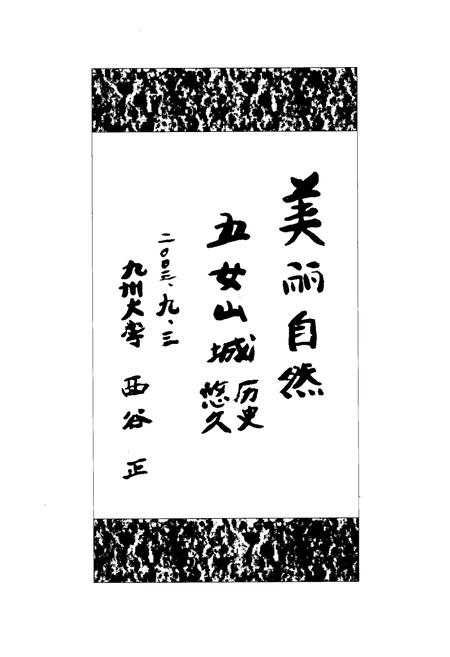 美丽自然
五女山城
历史
悠久
二〇〇三、九、三
九州大学
西谷 正